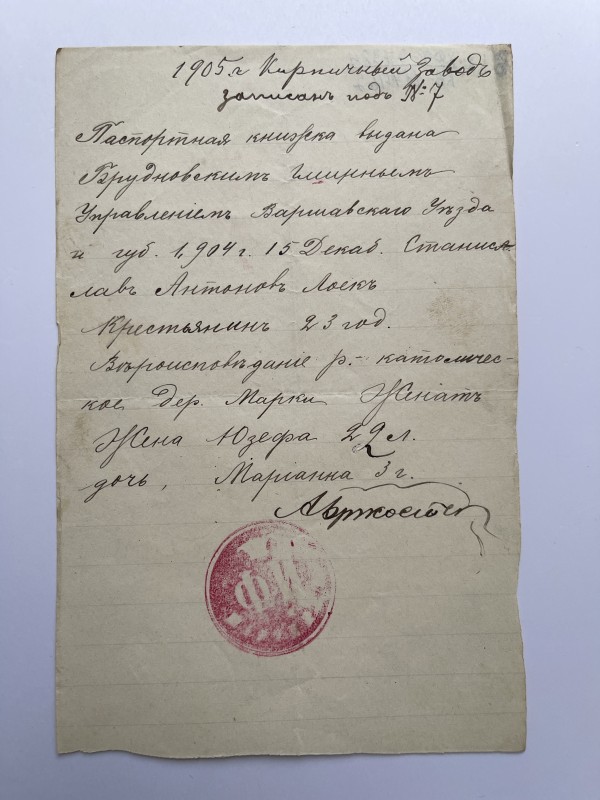 1905 г Кирпичный Заводъ
записанъ подъ № 7
Паспортная книжка выдана
Брудновскимъ Гминнымъ
Управленіемъ Варшавскаго Уѣзда
и губ. 1904 г. 15 Декаб. Станис
лавъ Антоновъ Лоекъ
Крестьянинъ 23 год.
Вѣроисповѣданіе р.- католичес-
кое дер. Марки Женатъ
Жена Юзефа 22 л.
дочь, Маріанна 3 г.